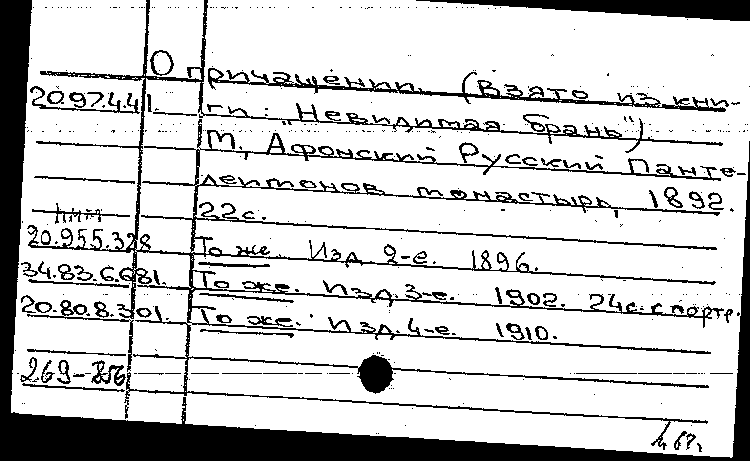 О причащении. (Взято из кни-
20.97.4.41. ги: „Невидимая брань")
М., Афонский Русский Панте-
леймонов монастырь, 1892.
22с.
20.955.328 То же. Изд. 2-е. 1896.
34.83.6.681. То же. Изд. 3-е. 1902. 24с. с портр.
20.80.8.301. То же. Изд. 4-е. 1910.
269-856